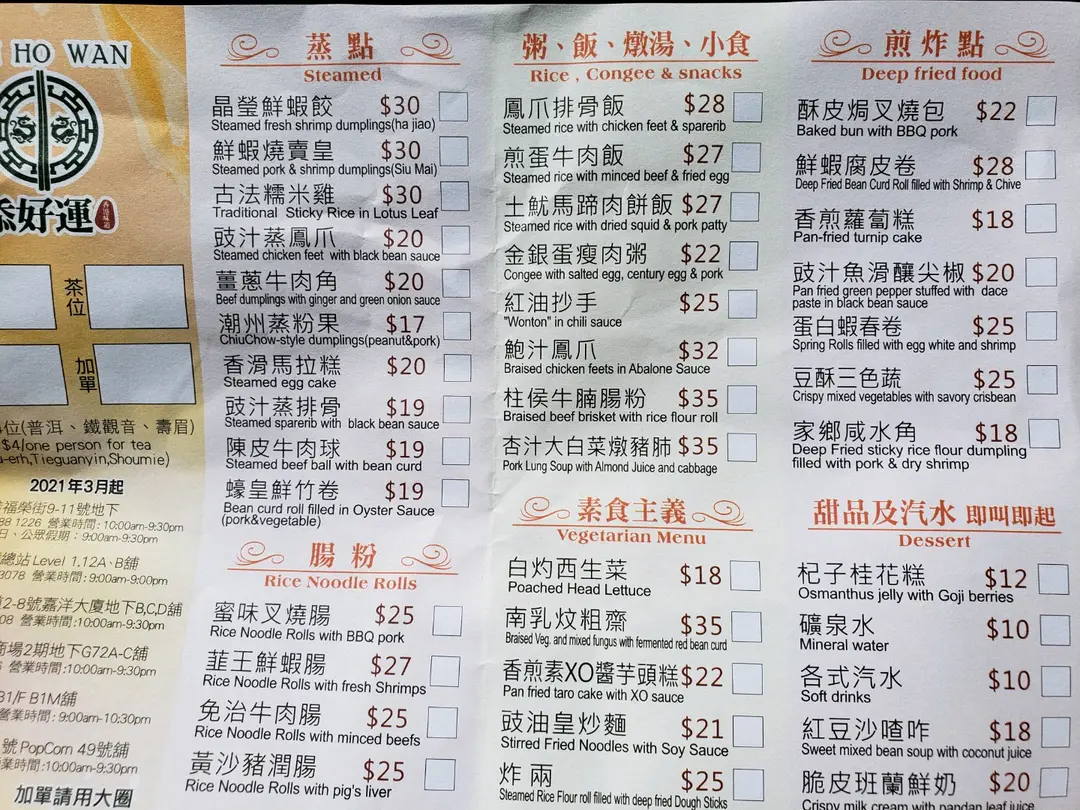 HO WAN
好運
茶位
加單
位(普洱、鐵觀音、壽眉)
$4/one person for tea
-erh,Tieguanyin,Shoumie)
2021年3月起
福榮街9-11號地下
88 1226 營業時間:10:00am-9:30pm
日、公眾假期:9:00am-9:30pm
總站 Level 1,12A、B舖
3078 營業時間:9:00am-9:00pm
2-8號嘉洋大廈地下B,C,D舖
08 營業時間:10:00am-9:30pm
商場2期地下G72A-C舖
營業時間:10:00am-9:30pm
B1/F B1M舖
營業時間:9:00am-10:30pm
號PopCorn 49號舖
業時間:10:00am-9:30pm
加單請用大圈
蒸點
Steamed
晶瑩鮮蝦餃 $30
Steamed fresh shrimp dumplings(ha jiao)
鮮蝦燒賣皇 $30
Steamed pork & shrimp dumplings(Siu Mai)
古法糯米雞 $30
Traditional Sticky Rice in Lotus Leaf
豉汁蒸鳳爪 $20
Steamed chicken feet with black bean sauce
薑蔥牛肉角 $20
Beef dumplings with ginger and green onion sauce
潮州蒸粉果 $17
ChiuChow-style dumplings(peanut&pork)
香滑馬拉糕 $20
Steamed egg cake
豉汁蒸排骨 $19
Steamed sparerib with black bean sauce
陳皮牛肉球 $19
Steamed beef ball with bean curd
蠔皇鮮竹卷 $19
Bean curd roll filled in Oyster Sauce
(pork&vegetable)
腸粉
Rice Noodle Rolls
蜜味叉燒腸 $25
Rice Noodle Rolls with BBQ pork
韮王鮮蝦腸 $27
Rice Noodle Rolls with fresh Shrimps
免治牛肉腸 $25
Rice Noodle Rolls with minced beefs
黃沙豬潤腸 $25
Rice Noodle Rolls with pig's liver
粥、飯、燉湯、小食
Rice , Congee & snacks
鳳爪排骨飯 $28
Steamed rice with chicken feet & sparerib
煎蛋牛肉飯 $27
Steamed rice with minced beef & fried egg
土魷馬蹄肉餅飯 $27
Steamed rice with dried squid & pork patty
金銀蛋瘦肉粥 $22
Congee with salted egg, century egg & pork
紅油抄手 $25
"Wonton" in chili sauce
鮑汁鳳爪 $32
Braised chicken feets in Abalone Sauce
柱侯牛腩腸粉 $35
Braised beef brisket with rice flour roll
杏汁大白菜燉豬肺 $35
Pork Lung Soup with Almond Juice and cabbage
素食主義
Vegetarian Menu
白灼西生菜 $18
Poached Head Lettuce
南乳炆粗齋 $35
Braised Veg. and mixed fungus with fermented red bean curd
香煎素XO醬芋頭糕 $22
Pan fried taro cake with XO sauce
豉油皇炒麵 $21
Stirred Fried Noodles with Soy Sauce
炸兩 $25
Steamed Rice Flour roll filled with deep fried Dough Sticks
煎炸點
Deep fried food
酥皮焗叉燒包 $22
Baked bun with BBQ pork
鮮蝦腐皮卷 $28
Deep Fried Bean Curd Roll filled with Shrimp & Chive
香煎蘿蔔糕 $18
Pan-fried turnip cake
豉汁魚滑釀尖椒 $20
Pan fried green pepper stuffed with dace
paste in black bean sauce
蛋白蝦春卷 $25
Spring Rolls filled with egg white and shrimp
豆酥三色蔬 $25
Crispy mixed vegetables with savory crisbean
家鄉咸水角 $18
Deep Fried sticky rice flour dumpling
filled with pork & dry shrimp
甜品及汽水 即叫即起
Dessert
杞子桂花糕 $12
Osmanthus jelly with Goji berries
礦泉水 $10
Mineral water
各式汽水 $10
Soft drinks
紅豆沙喳咋 $18
Sweet mixed bean soup with coconut juice
脆皮班蘭鮮奶 $20
Crispy milk cream with pandan leaf juice